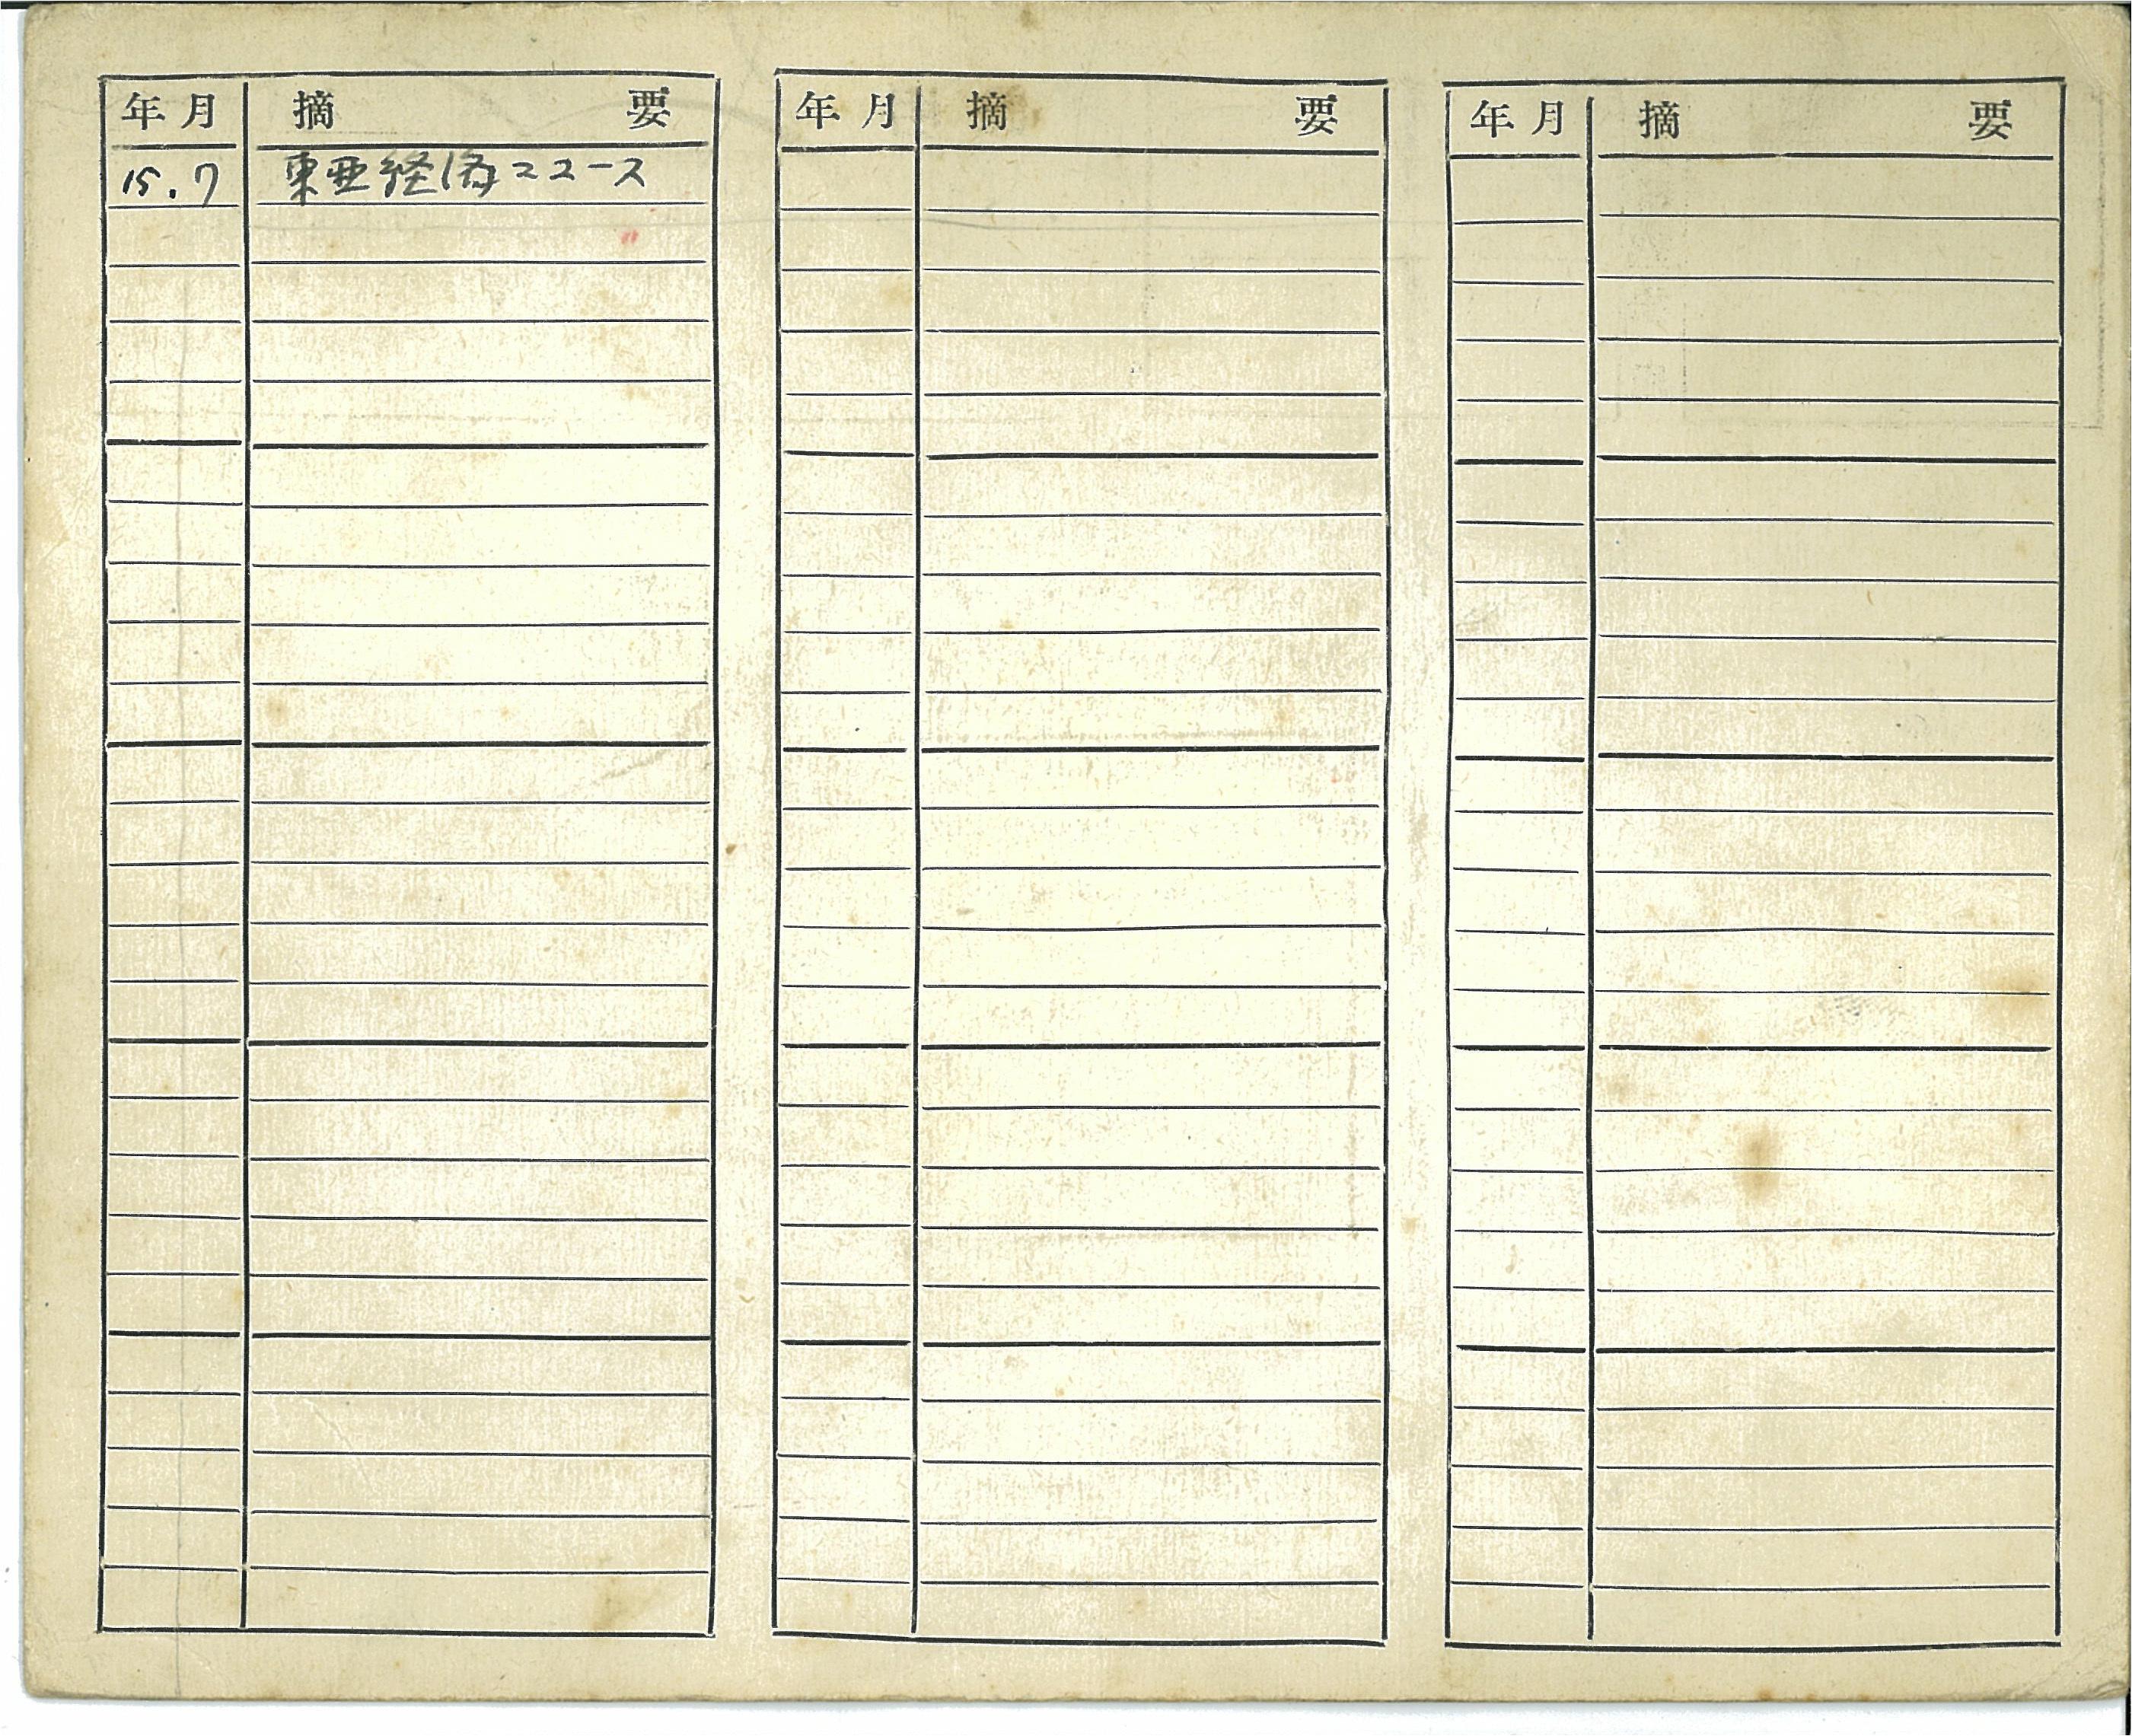 年月 摘 要
15.7 東亜経済ニュース
年月 摘 要
年月 摘 要